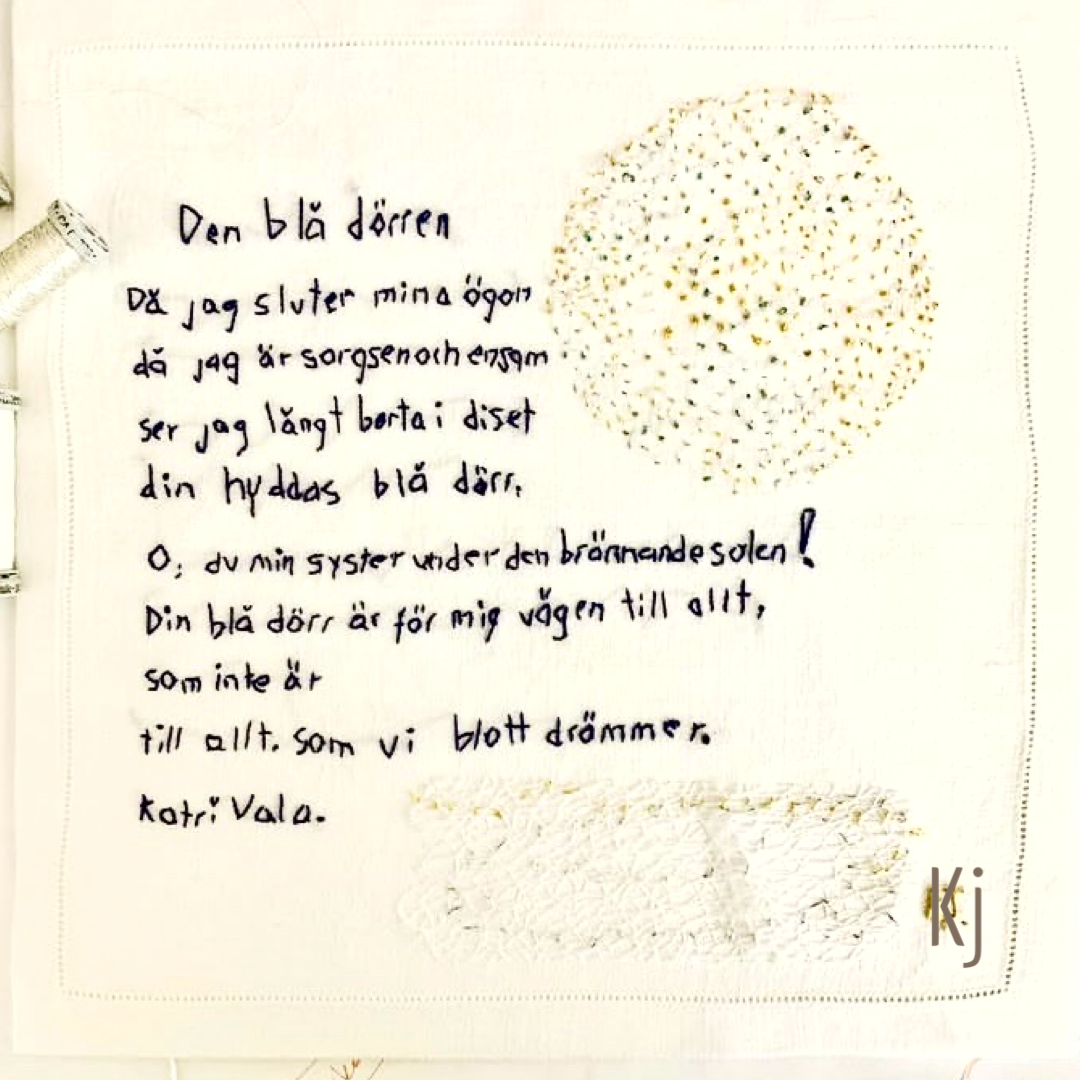 Den blå dörren
Då jag sluter mina ögon
då jag är sorgsen och ensam
ser jag långt borta i diset
din hyddas blå dörr.
O, du min syster under den brännande solen!
Din blå dörr är för mig vägen till allt,
som inte är
till allt. som vi blott drömmer.
Katri Vala.
Kj